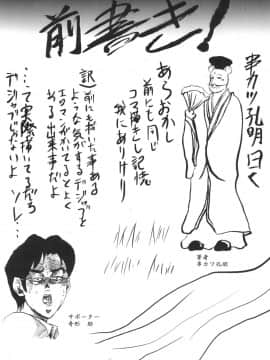 前書き!
串カツ孔明 曰く
あらおかし
前にも同じ
コマ描きし記憶
我にありけり
訳)前にも描いた事ある
ような気がするデジャブと
エロマンガかいてるとよく
ある出来事だよ
…って実際描いてるだろ
デジャブじゃないよ ソレ…
著者
串カツ孔明
サポーター